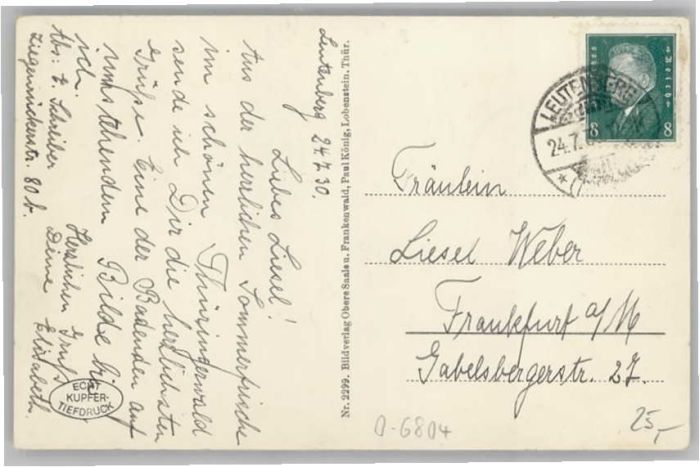 Leutenberg 24.7.30.
Liebes Liesel!
Aus der herrlichen Sommerfrische
im schönen Thüringerwald
sende ich Dir die herzlichsten
Grüße. Eine der Badenden auf
umstehendem Bilde bin
ich.
Herzlichen Gruß
Deine Elisabeth.
Abs: E. Schreiber
Ziegenrückerstr. 80 b.
ECHT
KUPFER-
TIEFDRUCK
Nr. 2299. Bildverlag Obere Saale u. Frankenwald, Paul König, Lobenstein, Thür.
8 8
LEUTENBERG
24.7.
Fräulein
Liesel Weber
Frankfurt a/M
Gabelsbergerstr. 27.
D-6804
25,-